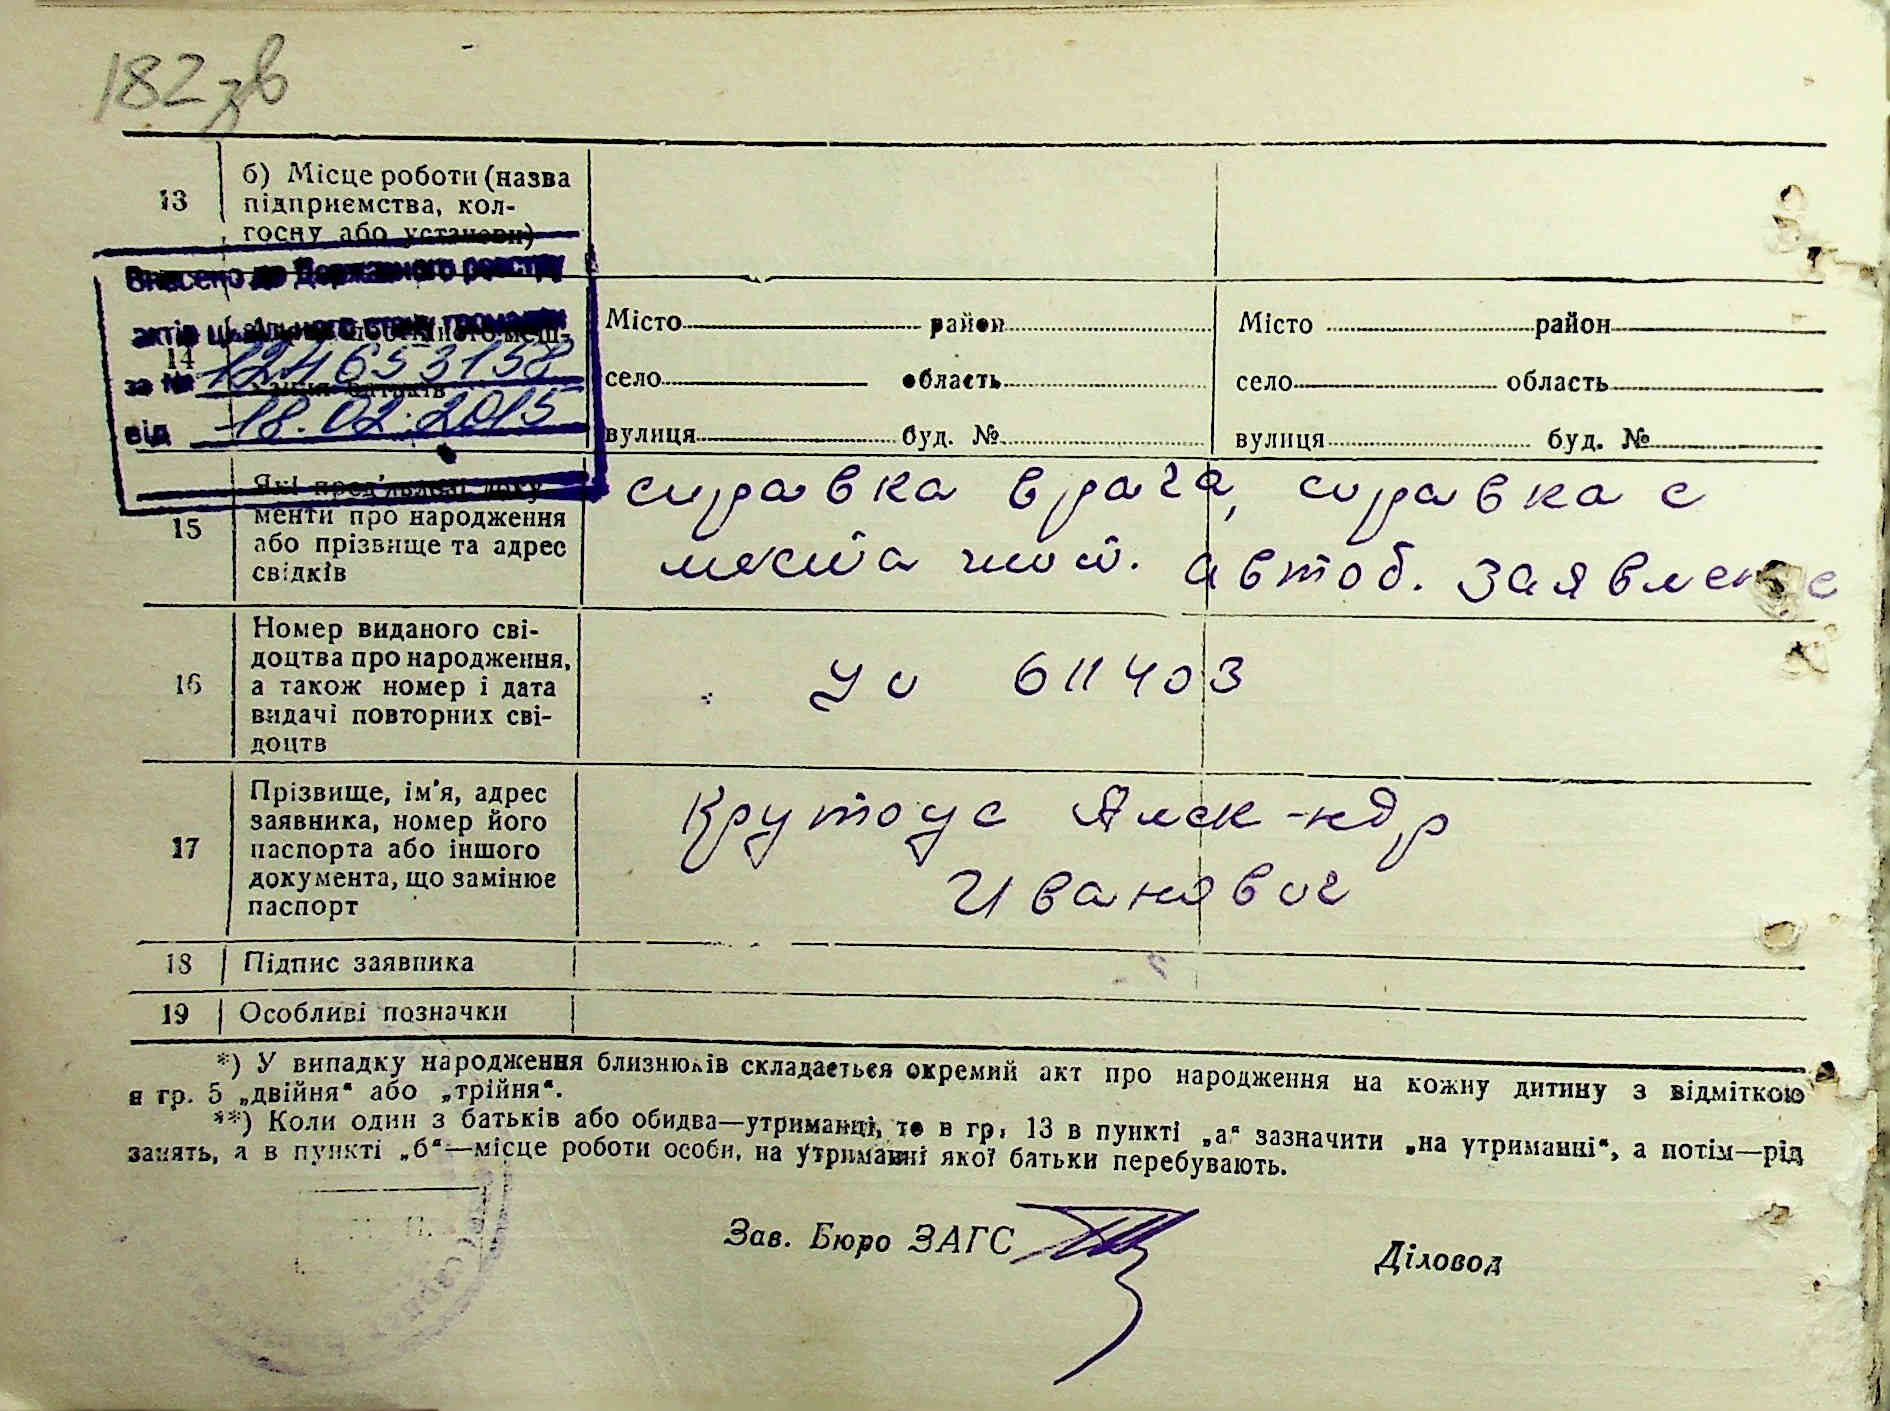 182 зв
13
б) Місце роботи (назва
підприємства, кол-
госпу або установи)
Внесено до Державного реєстру
актів цивільного стану громадян
за № 124653158
від 18.02.2015
14
Місто район
село область
вулиця буд. №
Місто район
село область
вулиця буд. №
15
Які пред'явлені доку-
менти про народження
або прізвище та адрес
свідків
справка врача, справка с
места жит. автоб. заявление
16
Номер виданого сві-
доцтва про народження,
а також номер і дата
видачі повторних сві-
доцтв
УО 611403
17
Прізвище, ім'я, адрес
заявника, номер його
паспорта або іншого
документа, що замінює
паспорт
Крутоус Алек-ндр
Иванович
18 Підпис заявника
19 Особливі позначки
*) У випадку народження близнюків складається окремий акт про народження на кожну дитину з відміткою
в гр. 5 „двійня“ або „трійня“.
**) Коли один з батьків або обидва—утриманці, то в гр. 13 в пункті „а“ зазначити „на утриманні“, а потім—рід
занять, а в пункті „б“—місце роботи особи, на утриманні якої батьки перебувають.
М. П.
Зав. Бюро ЗАГС
Діловод